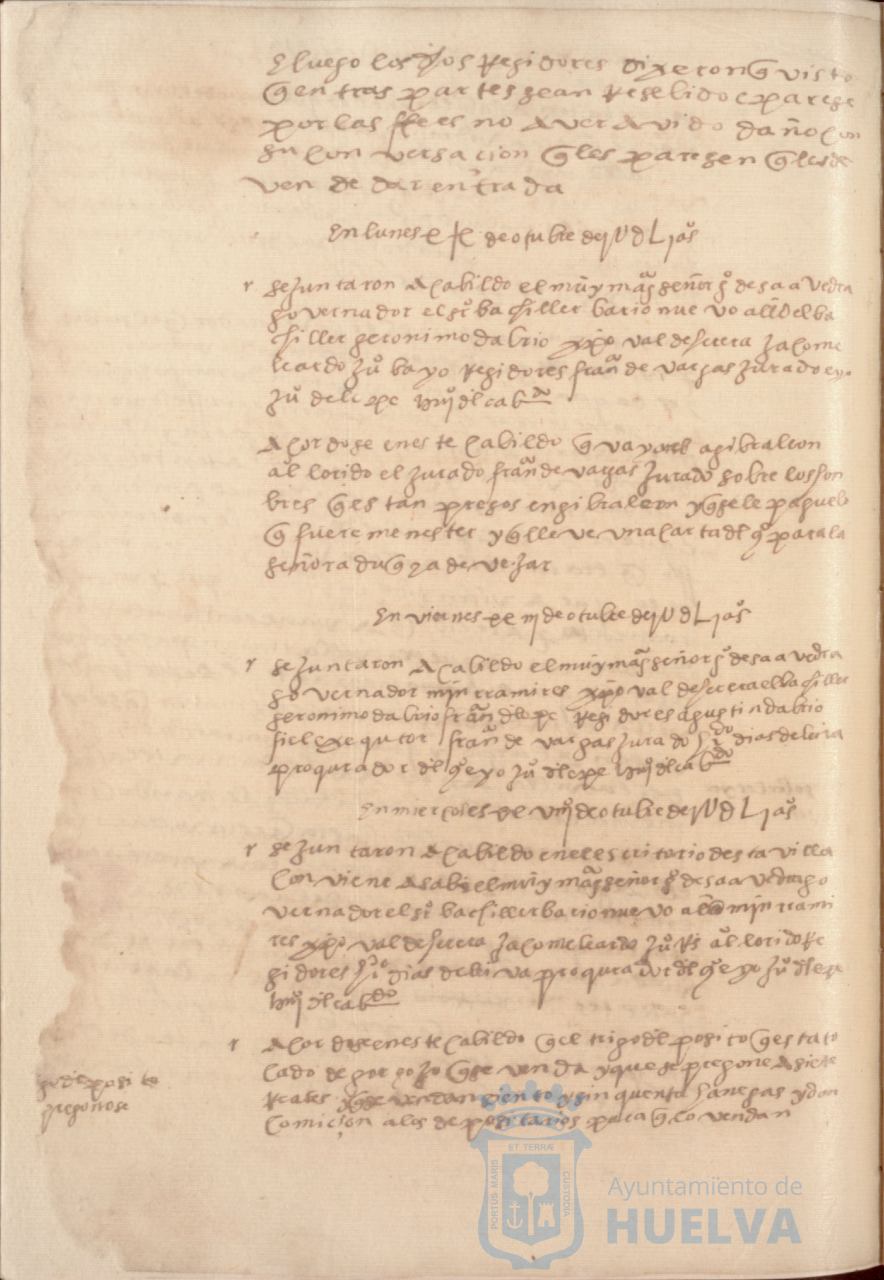 E luego los dhos Regidores dixeron q visto
q en tras partes sean Resebido e parese
por las fees no aver avido daño con
su conversacion q les paresen q les de
ven de dar entrada
En lunes de otubre de 1 U d L j aºs
r se juntaron a cabildo el muy magº señor gº de saavedra
governador el sr bachiller barionuevo allde el ba
chiller geronimo dabrio xpoval de herera jacome
leardo juº bayo Regidores franº de vargas jurado e yo
juº de lepe del cabdo
Acordose en este cabildo q vaya a gibraleon
al lorido el jurado franº de vargas jurado sobre los hon
bres q estan presos en gibraleon y q se le pague lo
q fuere menester y q lleve una carta dl qº para la
señora duq sa de vejar
En viernes de otubre de 1 U d L j aºs
r se juntaron a cabildo el muy magº señor gº de saavedra
governador min rramires xpoval de herera el bachiller
geronimo dabrio franº dlepe Regidores agustin dabrio
fiel exequtor franº de vargas jurado dias de leiva
procurador dl qº e yo juº dlepe dl cabdo
En miercoles de otubre de 1 U d L j aºs
r se juntaron a cabildo en el escritorio desta villa
conviene a saber el muy magº señor gº de saavedra go
vernador el sr bachiller barionuevo allde min rrami
res xpoval de herera jacome leardo juº Rs al lorido Re
gidores dias de leiva procurador dl qº e yo juº dlepe
dl cabdo
r Acordose en este cabildo q el trigo dl posito q esta to
cado de gorgojo q se venda y que se pregone a siete
Reales y q se vendan siento y sinquenta hanegas y dan
comicion a los depositarios para q lo vendan
posito
pregonose
PORTUS MARIS
ET TERRÆ
CUSTODIA
Ayuntamiento de
HUELVA